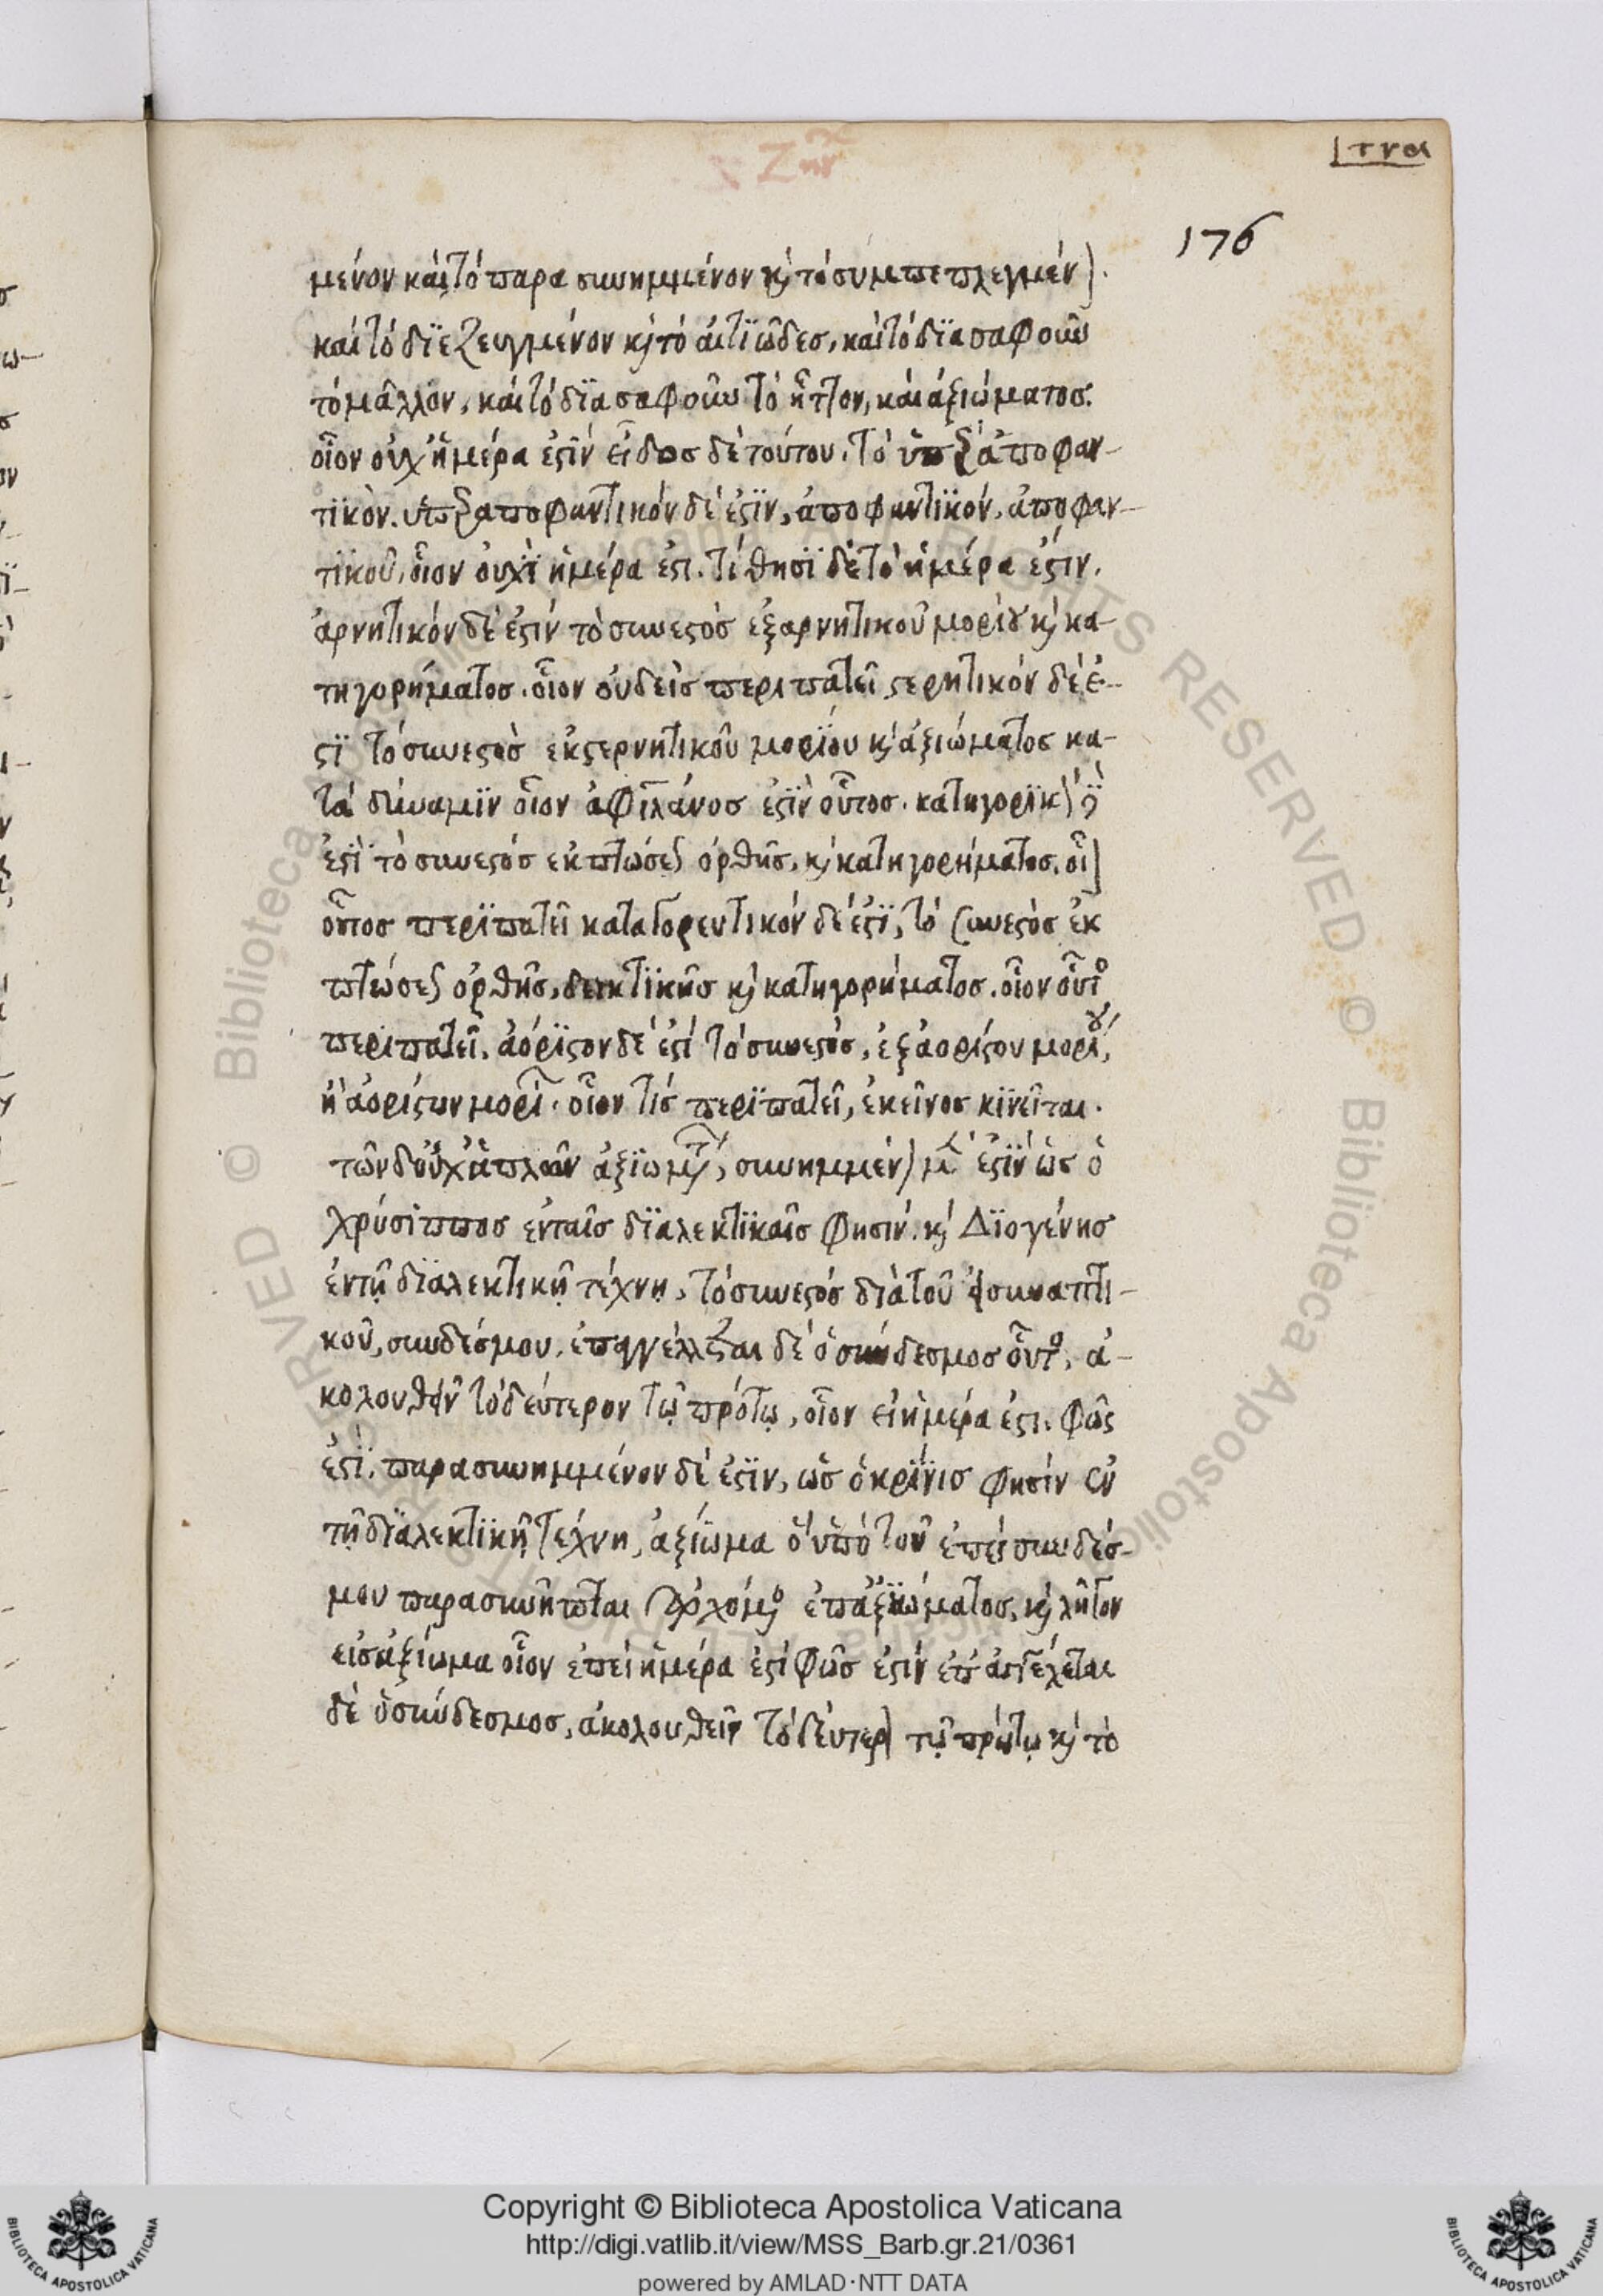 Ζην
τνα
176
μένον καὶ τὸ παρασυνημμένον κ̀ τὸ συμπεπλεγμένον.
καὶ τὸ δϊεζευγμένον κ̀ τὸ αἰτϊῶδες, καὶ τὸ δϊασαφοῦν
τὸ μᾶλλον, καὶ τὸ δϊασαφοῦν τὸ ἧττον, καὶ ἀξιώματος.
οἷον οὐχ ἡμέρα ἐστὶν εἶδος δὲ τούτου. τὸ ὑπεραποφαν-
τϊκὸν. ὑπεραποφαντικόν δέ ἐστϊν, ἀποφαντϊκόν, ἀποφαν-
τϊκοῦ, οἷον οὐχῒ ἡμέρα ἐστι. τίθησϊ δὲ τὸ ἡμέρα ἐστιν.
ἀρνητικόν δέ ἐστιν τὸ συνεστὸς ἐξ ἀρνητικοῦ μορίου κ̀ κα-
τηγορήματος. οἷον οὐδεὶς περιπατεῖ στερητικόν δέ ἐ-
στϊ τὸ συνεστὸς ἐκ στερνητικοῦ μορΐου κ̀ ἀξιώματος κα-
τὰ δύναμϊν οἷον ἀφϊλάνος ἐστϊν οὗτος. κατηγορϊκὸν δὲ
ἐστϊ τὸ συνεστός ἐκ πτώσεως ὀρθῆς, κ̀ κατηγορήματος. οἷον
οὗτος περϊπατεῖ καταγορευτικόν δέ ἐστϊ, τὸ συνεστὸς ἐκ
πτώσεως ὀρθῆς, δεικτϊκῆς κ̀ κατηγορήματος. οἷον οὗτος
περιπατεῖ. ἀόρϊστον δέ ἐστί τὸ συνεστός, ἐξ ἀορίστου μορίου,
ἢ ἀορίστων μορί. οἷον τίς περϊπατεῖ, ἐκεῖνος κϊνεῖται.
τῶν δ οὐχ ἁπλῶν ἀξϊωμάτων, συνημμένον μέν ἐστϊν ὡς ὁ
χρύσιππος ἐν ταῖς δϊαλεκτϊκαῖς φησιν. κ̀ Δϊογένης
ἐν τῇ δϊαλεκτικῇ τέχνῃ, τὸ συνεστός διὰ τοῦ εἰ συναπτι-
κοῦ, συνδέσμου. ἐπαγγέλλεται δὲ ὁ σύνδεσμος οὗτος, ἀ-
κολουθεῖν τὸ δεύτερον τῷ πρότῳ, οἷον εἰ ἡμέρα ἐστι. φῶς
ἐστϊ. παρασυνημμένον δέ ἐστϊν, ὡς ὁ κρΐνις φησίν ἐν
τῇ δϊαλεκτϊκῇ τέχνη, ἀξΐωμα ὃ ὑπὸ τοῦ ἐπεὶ συνδέσ-
μου παρασυνῆπται ἀρχόμενον ἐπ ἀξϊώματος, κ̀ λῆγον
εἰς ἀξίωμα οἷον ἐπεὶ ἡμέρα ἐστί φῶς ἐστίν
δὲ ὁ σύνδεσμος, ἀκολουθεῖν τὸ δεύτερον τῷ πρώτῳ κ̀ τὸ
Copyright © Biblioteca Apostolica Vaticana
http://digi.vatlib.it/view/MSS_Barb.gr.21/0361
powered by AMLAD·NTT DATA